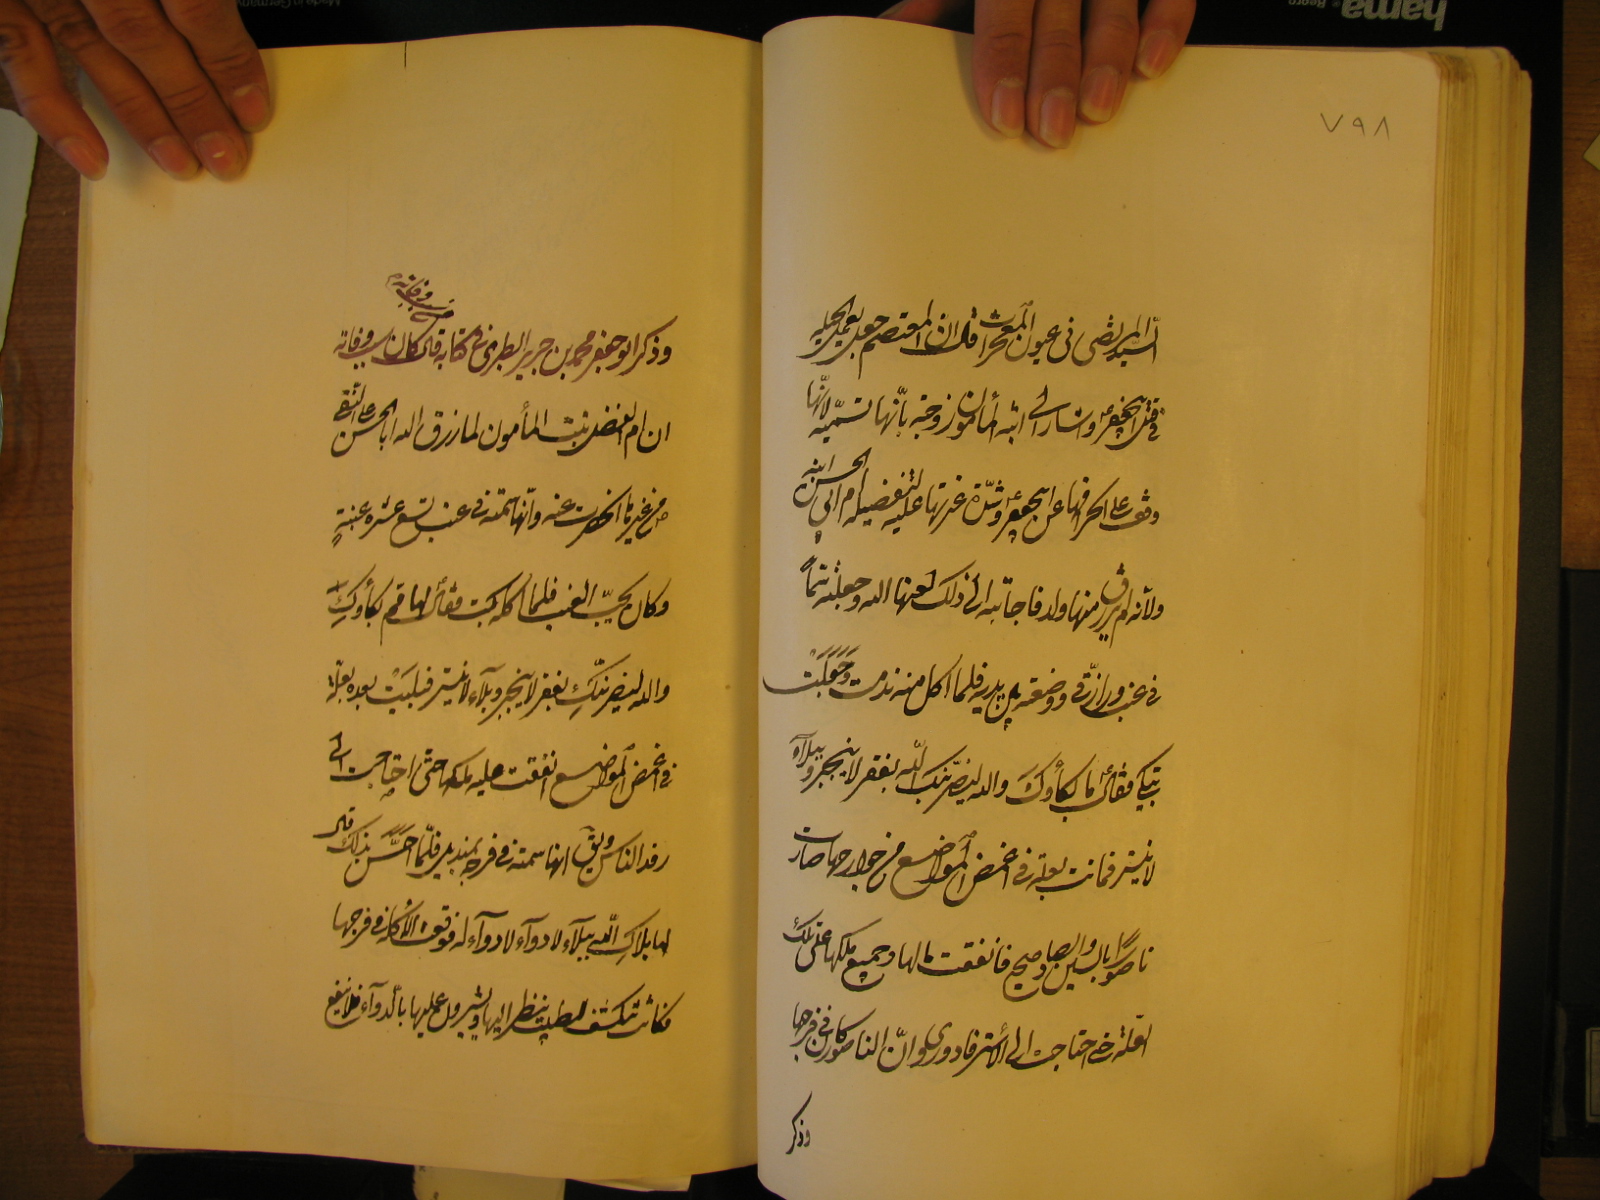 ٧٩٨
السيد المرتضى في عيون المعجزات قال ان المعتصم جعل يعمل الحيلة
في قتل ابي جعفر ع واشار الى ابنة المأمون زوجته بأنها تسمّه لأنّها
وقف على انحرافها عن ابي جعفر ع وشدّة غيرتها عليه لتفضيله ام ابي الحسن ابنه
ولأنه لم يرزق منها ولد فاجابته الى ذلك لعنها الله وجعلت سمّاً
في عنب ورازقي ووضعته بين يديه فلما اكل منه ندمت وجعلت
تبكي فقال ما بكاؤك والله ليضربنك الله بفقر لا ينجبر وببلاء
لا ينستر فماتت بعلة في اغمض المواضع من جوارحها صارت
ناصوراً بالسين والصاد صح فانفقت مالها وجميع ملكها على تلك
العلة حتى احتاجت الى الاسترفاد وروي وانّ الناصور كان في فرجها
وذكر
وذكر ابو جعفر محمد بن جرير الطبري في كتابه قال كان سبب وفاته
سبب وفاته
ان ام الفضل بنت المأمون لما رزق الله ابا الحسن علي النقي
من غيرها انحرفت عنه وانّها سمته في عنب تسع عشرة عنبة
وكان يحبّ العنب فلما اكله بكت فقال لها مم بكاؤكِ
والله ليضربنّكِ بفقر لا ينجبر وبلاء لا ينستر فبليت بعده بعلة
في اغمض المواضع انفقت عليه ملكها حتى احتاجت الى
رفد الناس ويق انها سمته في فرجه بمنديل فلمّا احسّ بذلك قال
لها بلاكِ الله ببلاء لا دواء لا دواء له فوقعت الأكلة في فرجها
فكانت تنكشف للطبيب ينظر اليها ويشيرون عليها بالدواء فلا ينفع